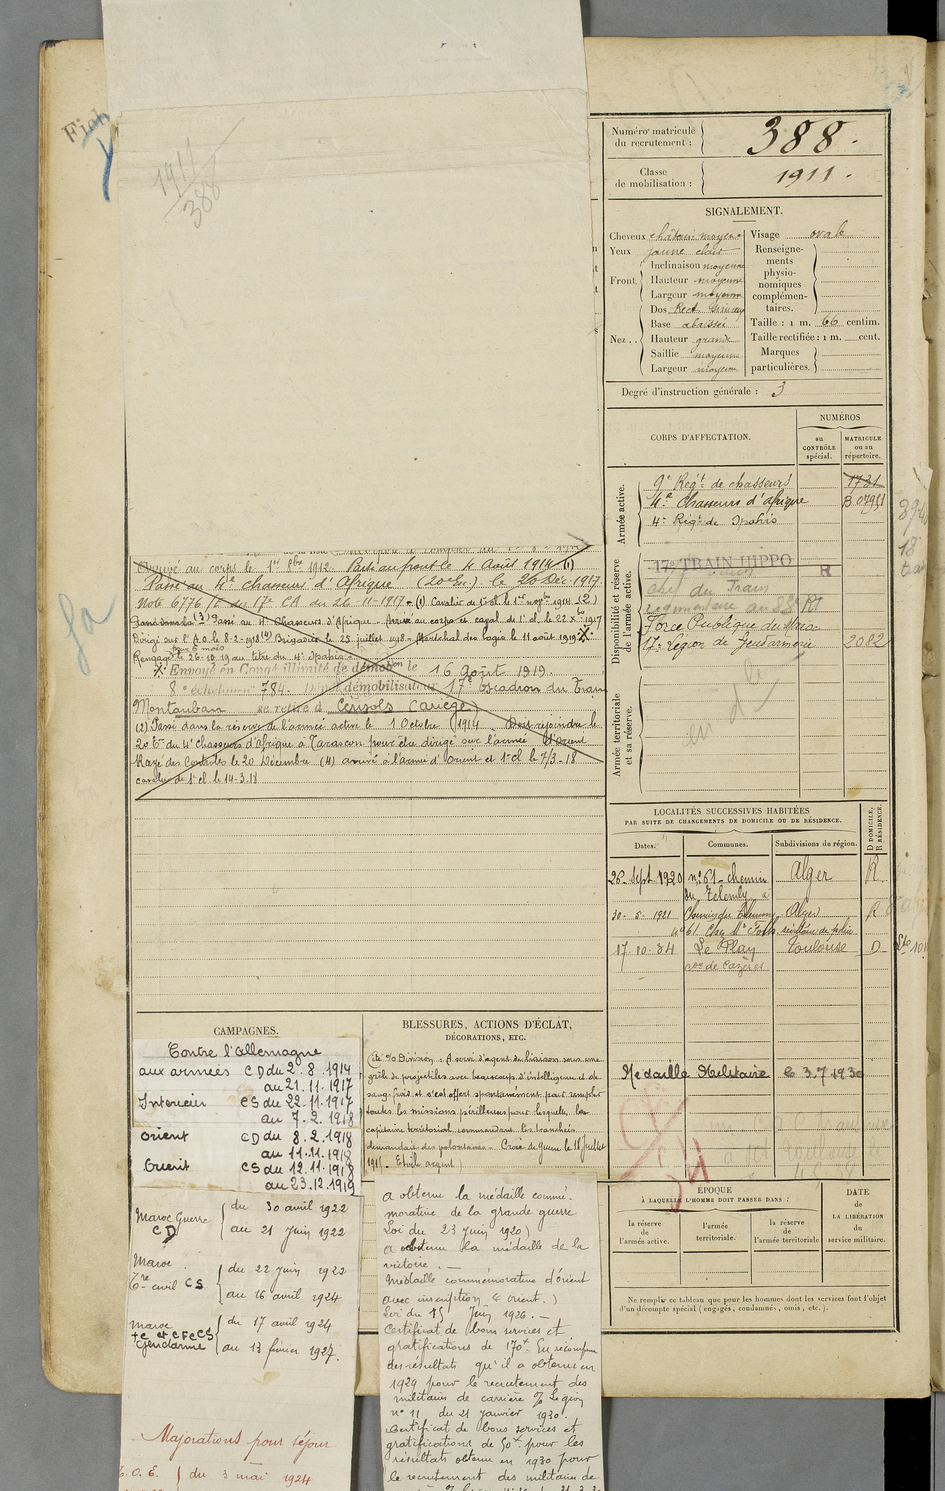 Fich
1911
388
Numéro matricule
du recrutement :
388.
Classe
de mobilisation :
1911.
SIGNALEMENT.
Cheveux châtain moyen
Yeux jaune clair
Front. Inclinaison moyenne
Hauteur moyenne
Largeur moyenne
Nez . . Dos Rect. sinueux
Base abaissée
Hauteur grande
Saillie moyenne
Largeur moyenne
Visage ovale
Renseigne-
ments
physio-
nomiques
complémen-
taires.
Taille : 1 m. 66 centim.
Taille rectifiée : 1 m. cent.
Marques
particulières.
Degré d'instruction générale : 3
CORPS D'AFFECTATION.
NUMÉROS
au
CONTRÔLE
spécial.
MATRICULE
ou au
répertoire.
Armée active.
9e Régt de chasseurs 1731
4e Chasseurs d'afrique
4e Régt de Spahis
Disponibilité et réserve
de l'armée active.
17e TRAIN HIPPO R
du Train
Force Publique du Maroc
17e Légion de Gendarmerie 2082
Armée territoriale
et sa réserve.
Arrivé au corps le 1er 8bre 1912. Parti au front le 4 Août 1914 (1)
Passé au 4e chasseurs d'Afrique (20e Er.) le 26 Déc. 1917
Note 6776 /C du 17e CA du 26-11-1917 - (1) Cavalier de 1e cl. le 1er novbre 1914 (2)
Passé au 4e Chasseurs d'Afrique - Arrivé au corps et caval. de 1e cl. le 22 Xbre 1917
Dirigé sur l'A.O. le 8-2-1918 Brigadier le 25 juillet 1918 - Maréchal des logis le 11 août 1919
pour 6 mois
Rengagé le 26-10-19 au titre du 4e Spahis
Envoyé en Congé illimité de démobon le 16 Août 1919.
8e échelon no 784. Dépôt démobilisateur 17e Escadron du Train
Montauban se retire à Cerisols (Ariège)
(2) Passé dans la réserve de l'armée active le 1 Octobre 1914 Doit rejoindre le
20 Er du 4e chasseurs d'Afrique à Tarascon pour être dirigé sur l'armée d'Orient
Rayé des Contrôles le 20 Décembre (4) arrivé à l'armée d'Orient et 1e cl le 7/3-18
cavalier de 1e cl le 14-3.18
LOCALITÉS SUCCESSIVES HABITÉES
PAR SUITE DE CHANGEMENTS DE DOMICILE OU DE RÉSIDENCE.
Dates.
Communes.
Subdivisions de région.
D DOMICILE,
R RÉSIDENCE.
26 Sept 1920 no 61 - chemin Alger R
du Telemly
30-5-1921 Chemin du Telemly Alger R
17-10-34 Le Plan Toulouse D
con de Cazères
Médaille Militaire le 3.7.1930
CAMPAGNES.
Contre l'Allemagne
aux armées CD du 2.8.1914
au 21.11.1917
Intérieur CS du 22.11.1917
au 7.2.1918
Orient CD du 8.2.1918
au 11.11.1918
Orient CS du 12.11.1918
au 23.12.1919
Maroc Guerre du 30 avril 1922
CD au 21 Juin 1922
Maroc du 22 Juin 1922
Tre civil CS au 16 avril 1924
Maroc du 17 avril 1924
Gendarme au 13 février 1927.
Majorations pour séjour
T.O.E. du 3 mai 1924
BLESSURES, ACTIONS D'ÉCLAT,
DÉCORATIONS, ETC.
Cité O/Division : A servi d'agent de liaison sous une
grêle de projectiles avec beaucoup d'intelligence et de
sang froid et s'est offert spontanément pour remplir
toutes les missions périlleuses pour lesquelles les
capitaine territorial commandant les tranchées
demandait des volontaires - Croix de Guerre le 18 juillet
1915 - Etoile argent)
a obtenu la médaille commé-
morative de la grande guerre
Loi du 23 Juin 1920)
a obtenu la médaille de la
victoire. -
Médaille commémorative d'orient
avec inscription (Orient.)
Loi du 15 Juin 1926. -
Certificat de bons services et
gratifications de 170f. En récompense
des résultats qu'il a obtenu en
1929 pour le recrutement des
militaires de carrière O/Légion
no 11 du 21 janvier 1930.
Certificat de bons services et
gratifications de 50f pour les
résultats obtenus en 1930 pour
le recrutement des militaires de
ÉPOQUE
À LAQUELLE L'HOMME DOIT PASSER DANS :
la réserve
de
l'armée active.
l'armée
territoriale.
la réserve
de
l'armée territoriale
DATE
de
LA LIBÉRATION
du
service militaire.
Ne remplir ce tableau que pour les hommes dont les services font l'objet
d'un décompte spécial (engagés, condamnés, omis, etc.).